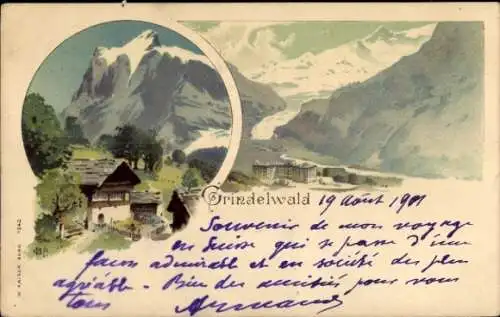 Grindelwald 19 Août 1901
Souvenir de mon voyage
en Suisse qui se passe d'une
façon admirable et en société des plus
agréable. Bien des amitiés pour vous
tous Armand
H. KAISER BERN 7242